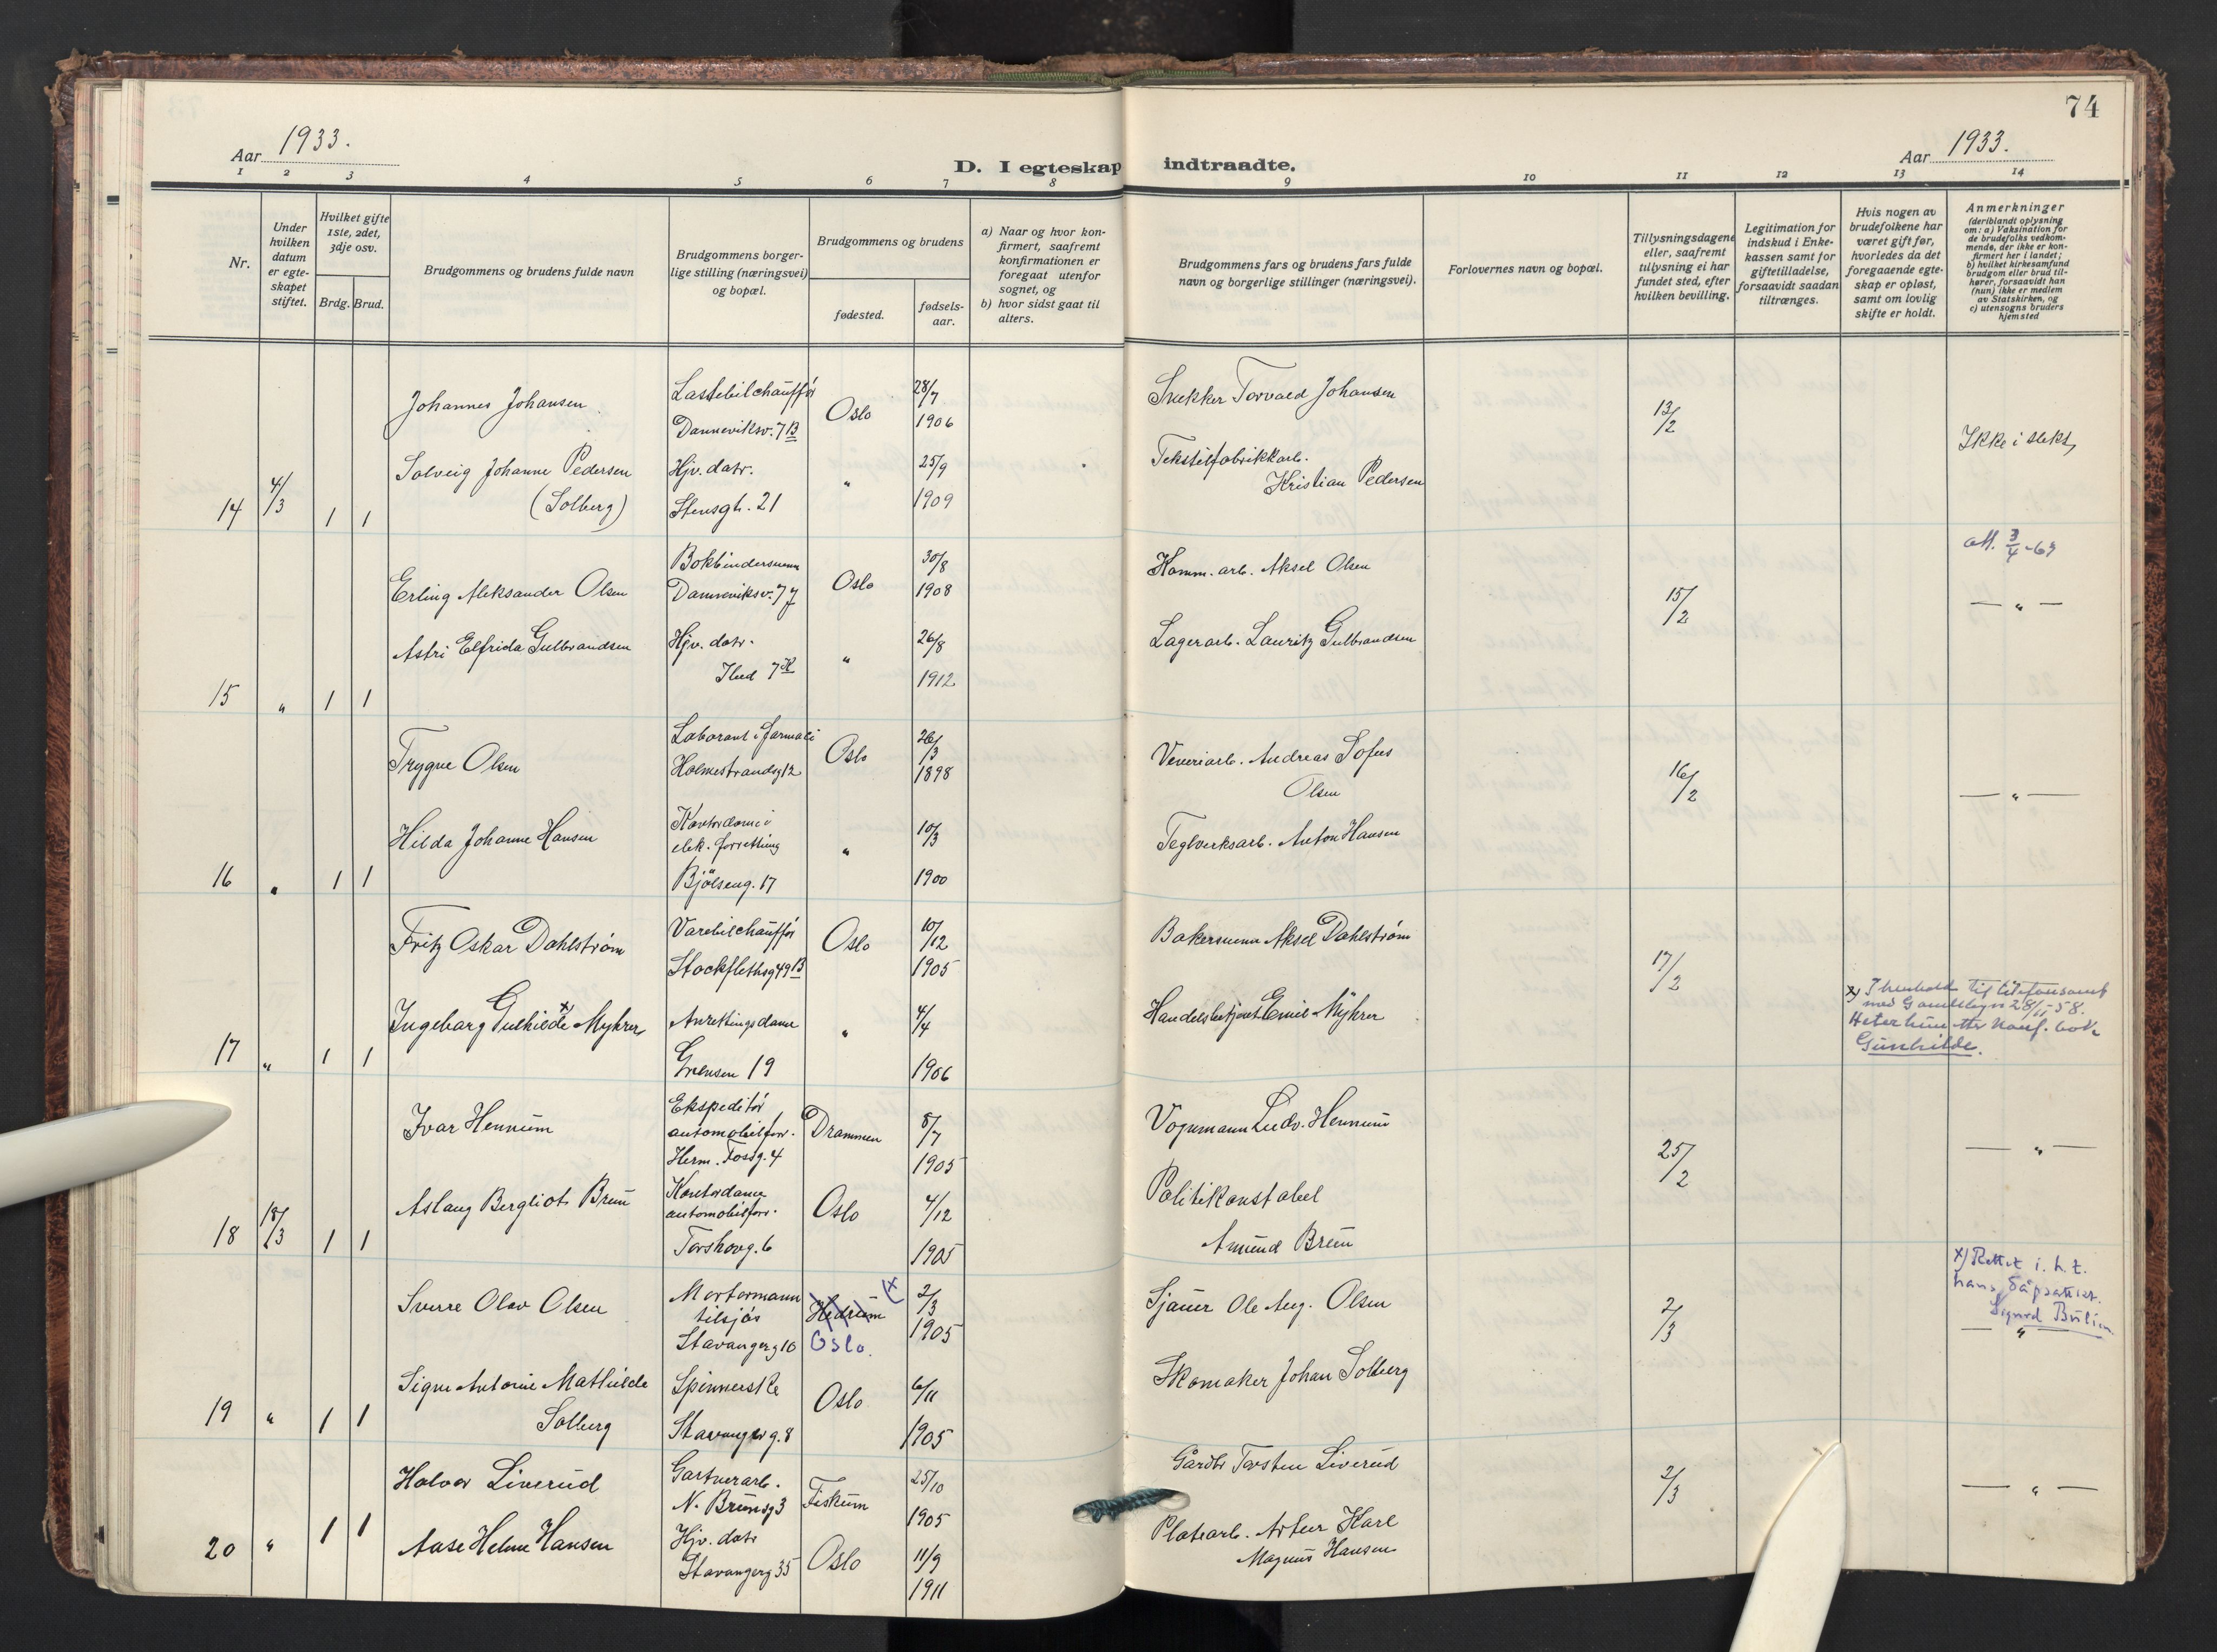 74
Aar 1933.
Aar 1933.
D. I egteskap indtraadte.
1 2 3 4 5 6 7 8 9 10 11 12 13 14
Nr.
Under hvilken datum er egteskapet stiftet.
Hvilket gifte 1ste, 2det, 3dje osv.
Brdg. Brud.
Brudgommens og brudens fulde navn
Brudgommens borgerlige stilling (næringsvei) og bopæl.
Brudgommens og brudens
fødested.
fødselsaar.
a) Naar og hvor konfirmert, saafremt konfirmationen er foregaat utenfor sognet, og
b) hvor sidst gaat til alters.
Brudgommens fars og brudens fars fulde navn og borgerlige stillinger (næringsvei).
Forlovernes navn og bopæl.
Tillysningsdagene eller, saafremt tillysning ei har fundet sted, efter hvilken bevilling.
Legitimation for indskud i Enkekassen samt for giftetilladelse, forsaavidt saadan tiltrænges.
Hvis nogen av brudefolkene har været gift før, hvorledes da det foregaaende egteskap er opløst, samt om lovlig skifte er holdt.
Anmerkninger
(deriblandt oplysning om: a) Vaksination for de brudefolks vedkommende, der ikke er konfirmert her i landet;
b) hvilket kirkesamfund brudgom eller brud tilhører, forsaavidt han (hun) ikke er medlem av Statskirken, og
c) utensogns bruders hjemsted
Johannes Johansen
Lastebilchauffør
Danneviksv. 7 B
Oslo
28/7
1906
Snekker Torvald Johansen
13/2
Ikke i slekt
Solveig Johanne Pedersen
(Solberg)
Hjv. datr.
Stensgt. 21
"
25/9
1909
Tekstilfabrikkarb.
Kristian Pedersen
14 4/3 1 1
Erling Aleksander Olsen
Bokbindersvenn
Danneviksv. 7
Oslo
30/8
1908
Komm. arb. Aksel Olsen
15/2
att. 3/4-63
— " —
Astri Elfrida Gulbrandsen
Hjv. datr.
Ilud 7
"
26/8
1912
Lagerarb. Lauritz Gulbrandsen
15 " 1 1
Trygve Olsen
Laborant i farmaci
Holmestrandsg 12
Oslo
26/3
1898
Veveriarb. Andreas Sofus
Olsen
16/2
— " —
Hilda Johanne Hansen
Kontordame i
elek. forretning
Bjölseng. 17
"
10/3
1900
Teglverksarb. Anton Hansen
16 " 1 1
Fritz Oskar Dahlström
Varebilchauffør
Stockflethsg 49 B
Oslo
10/12
1905
Bakersvenn Aksel Dahlström
17/2
Ingeborg Gulhilde x) Myhrer
Anretningsdame
Grensen 19
"
4/4
1906
Handelsbetjent Emil Myhrer
x) I henhold til telefonsamt
med Gamlebyen 28/11-58.
Heter hun etter konf. bok
Gunhilde.
17 " 1 1
Ivar Hennum
Ekspeditör
automobilforr.
Herm. Fossg. 4
Drammen
8/7
1905
Vognmann Ludv. Hennum
25/2
— " —
Aslaug Bergliot Breen
Kontordame
automobilforr.
Torshovg. 6
Oslo
4/12
1905
Politikonstabel
Amund Breen
18 18/3 1 1
Sverre Olav Olsen
Motormann
tilsjös
Stavangerg 10
Hedrum x)
Oslo.
2/3
1905
Sjauer Ole Aug. Olsen
2/3
x) Rettet i. h. t.
hans dåpsattest.
Sigurd
— " —
Signe Antonie Mathilde
Solberg
Spinnerske
Stavangerg. 8
Oslo
6/11
1905
Skomaker Johan Solberg
19 " 1 1
Halvor Liverud
Gartnerarb.
N. Brunsg 3
Fiskum
25/10
1905
Gårdbr Torsten Liverud
2/3
— " —
Aase Helene Hansen
Hjv. datr
Stavangerg 35
Oslo
11/9
1911
Platearb. Artur Karl
Magnus Hansen
20 " 1 1